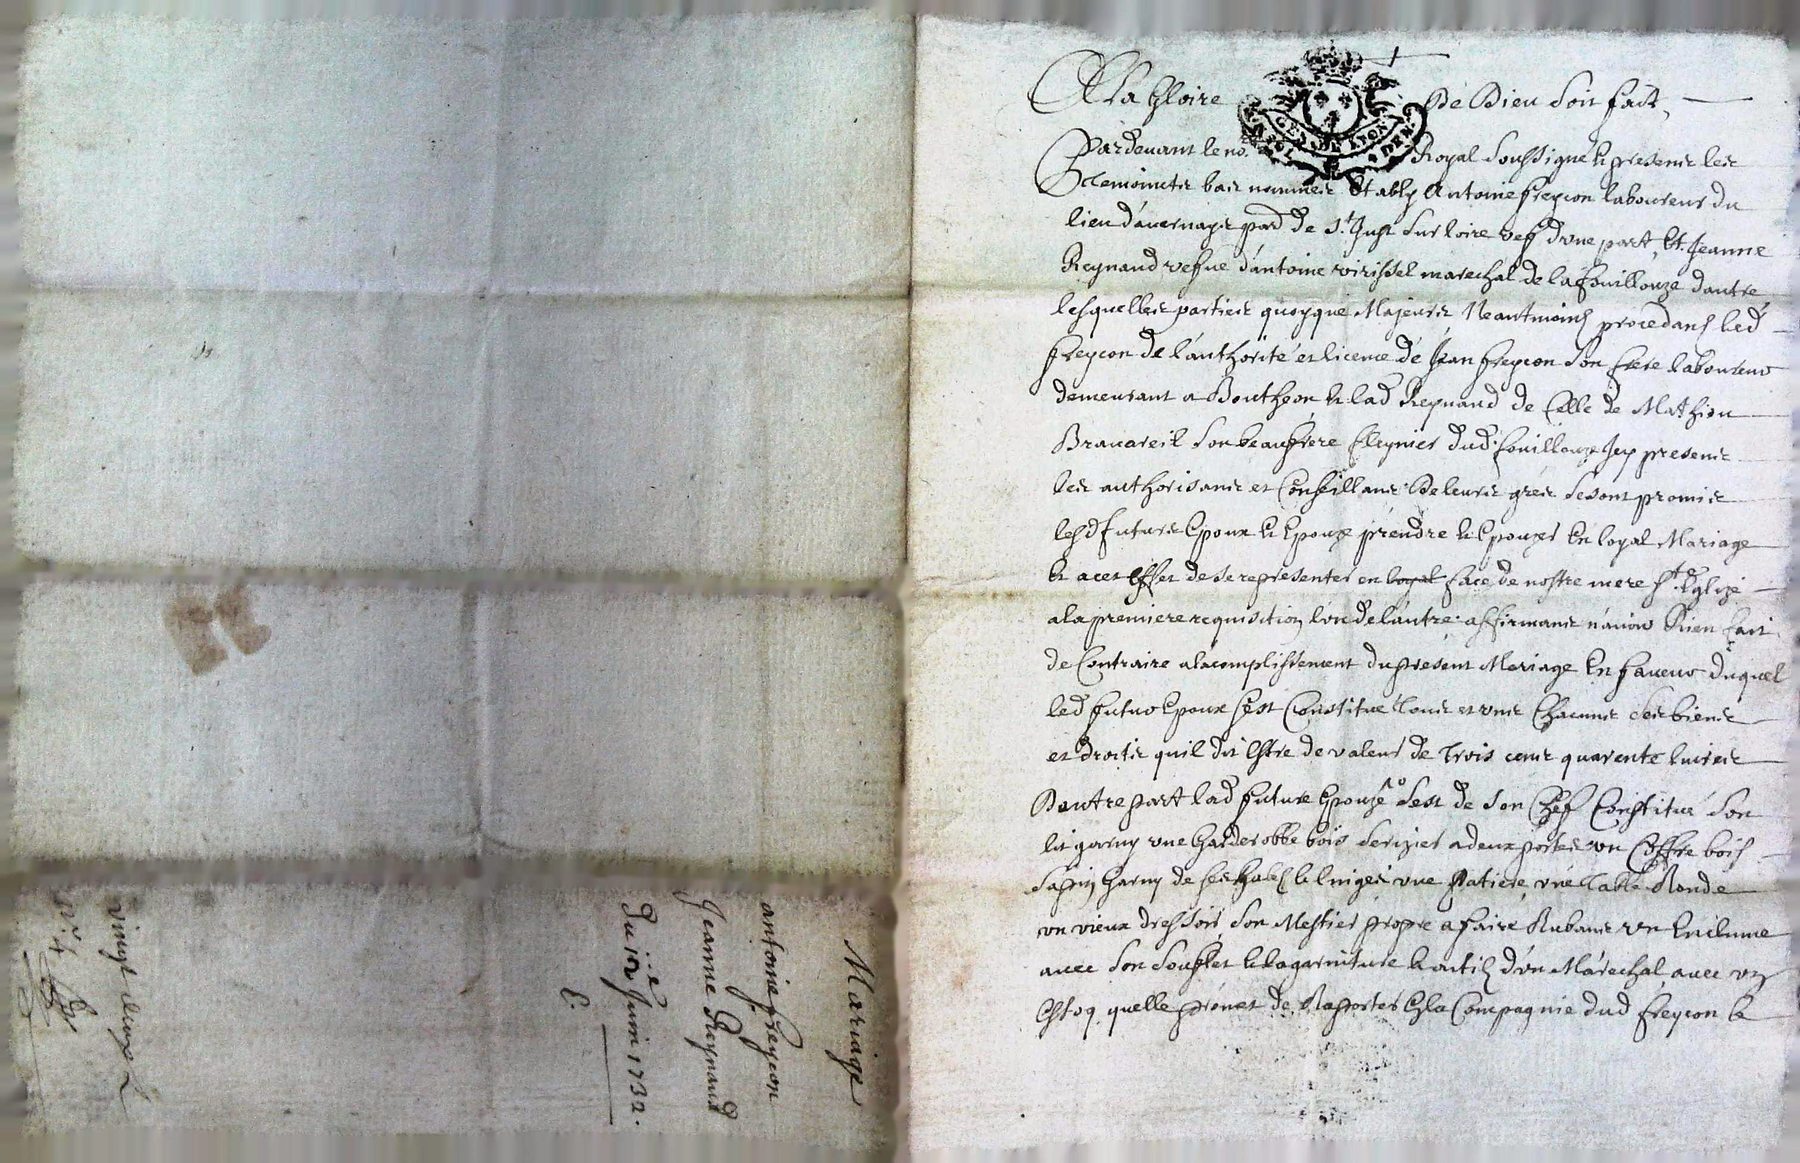 A La Gloire De Dieu Soit fait,
GEN. DE LYON
Pardevant le no.re Royal Soussigné & presents les
Temoints bas nommes Etably Antoine freycon laboureur du
lieu d'avernays par.d de S.t Just sur loire vef d'vne part, Et Jeanne
Reynaud vefue d'antoine virissel marechal de la fouillouze dautre
lesquelles parties quoyque Majeurs Neantmoins procedans led.
freycon de l'authorité et licence de Jean freycon son frere laboureur
demeurant a Boutheon & lad Reynaud de Celle de Mathieu
son beaufrere dud. fouillouze Jcy presents
les authorisants et Conseillans. De leurs gres se sont promis
lesd futurs Epoux & Epouze prendre & Epouzer En loyal Mariage
& a cet effet de se representer en loyal face de nostre mere S.te Eglize
a la premiere requisition l'vn de l'autre. affirmants n'auoir Rien fait
de Contraire alacomplissement du present Mariage En faueur duquel
led futur Epoux s'est Constitué Tous et vns Chacuns ses biens
et droits quil dit Estre de valeur de Trois cents quarente liures
Dautre part lad future Epouze s'est de son Chef Constitué son
lit garny vne Garderobbe bois serizier a deux portes vn Coffre bois
sapin Garny de ses & linges vne Patiere, vne Table Ronde
vn vieux dressoir, son Mestier propre a faire Rubans vn Enclume
auec son souflet & la garniture & outils d'vn Maréchal, auec vn
Estoq. quelle promet de Raporter En la Compagnie dud freycon &
Mariage
antoine freycon
Jeanne Reynaud
Du Juin 1732.
C.
vingt deuze
n.º 4